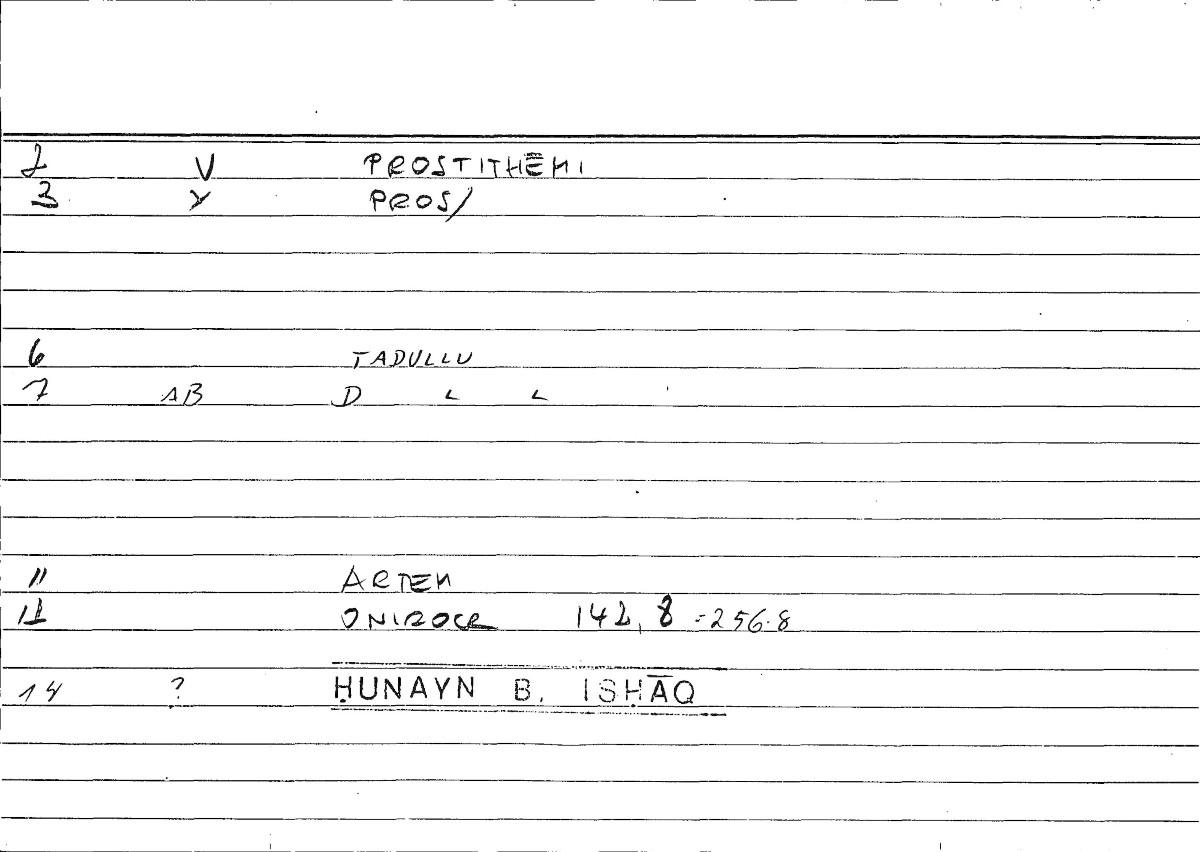 2 V PROSTITHĒMI
3 Y PROS/
6 TADULLU
7 AB D L L
11 ARTEM
12 ONIROCR 142, 8 = 256.8
14 ? ḤUNAYN B. ISḤĀQ